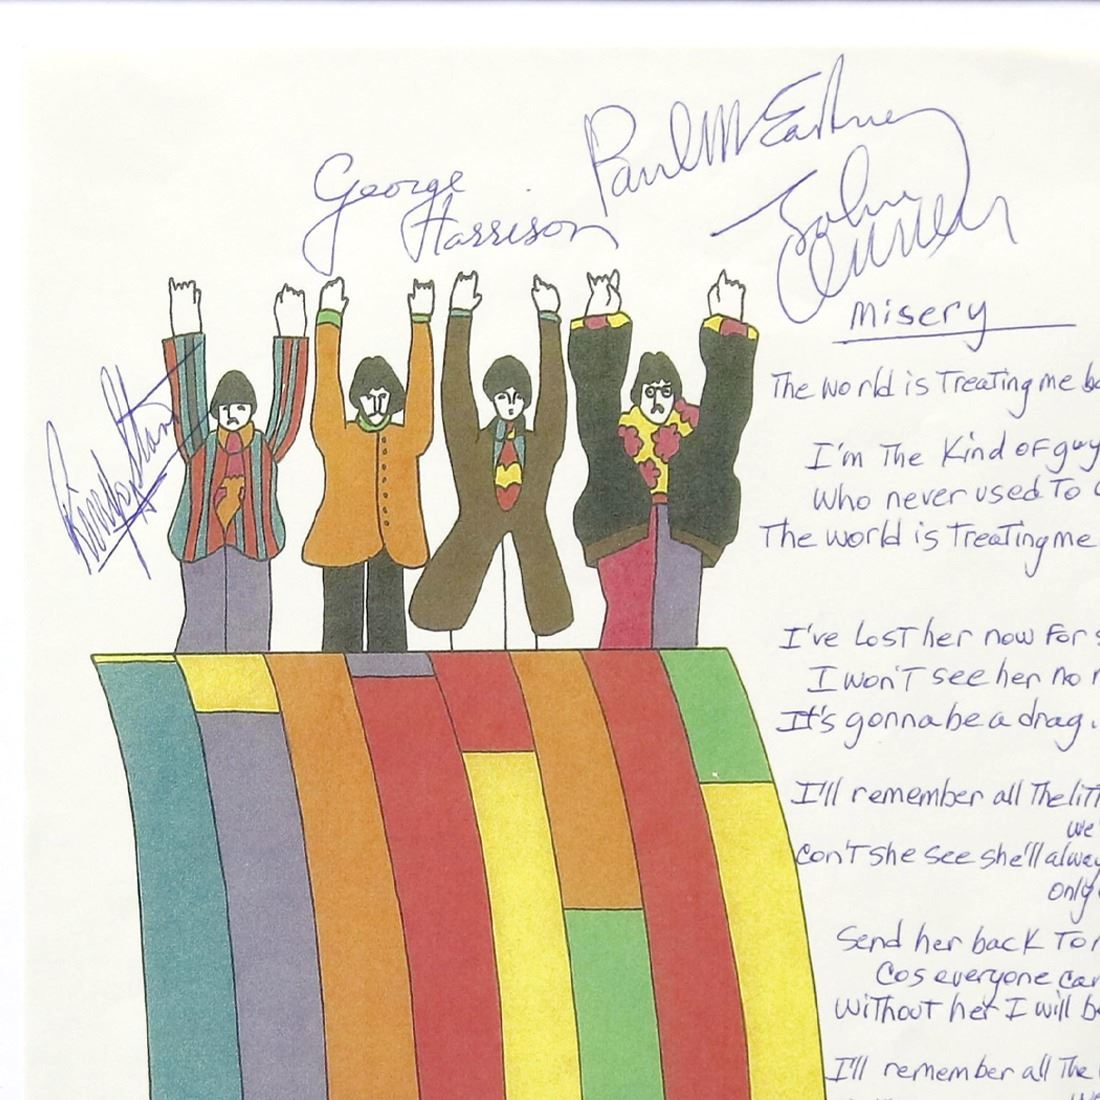 Paul McCartney
George
Harrison
John
Lennon
Ringo Starr
Misery
The world is Treating me ba
I'm The Kind of guy
who never used To c
The world is Treating me
I've Lost her now For s
I won't see her no m
It's gonna be a drag.
I'll remember all The litt
we'
Can't she see she'll alway
only
Send her back To m
Cos everyone can
Without her I will be
I'll remember all The